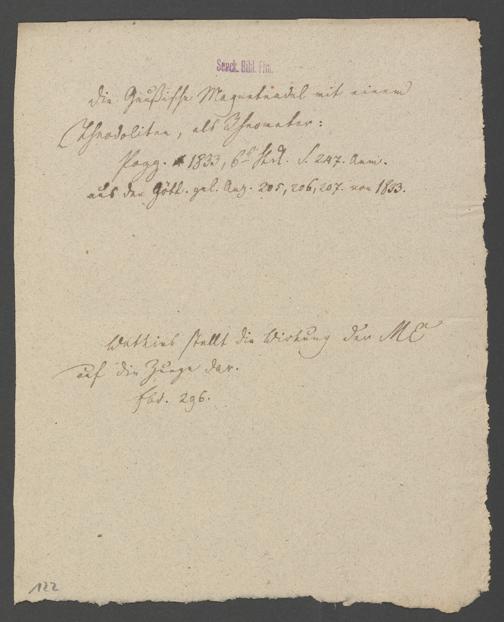 Senck. Bibl. Ffm.
die Gaußische Magnetnadel mit einem
Theodoliten, als Rheometer:
Pogg. 1833, 6s Stck. S. 247. Anm.
aus den Gött. gel. Anz. 205, 206, 207. von 1833.
Watkins stellt die Wirkung der ME
auf die Zunge dar.
Ebd. 296.
122